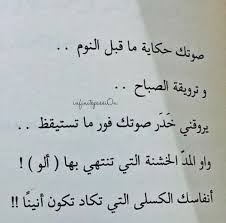 صوتك حكاية ما قبل النوم . .
و ترويقة الصباح . .
infinitepassi0n
يروقني خَدَر صوتك فور ما تستيقظ . .
واو المدّ الخشنة التي تنتهي بها ( ألو ) !
أنفاسك الكسلى التي تكاد تكون أنينًا !!